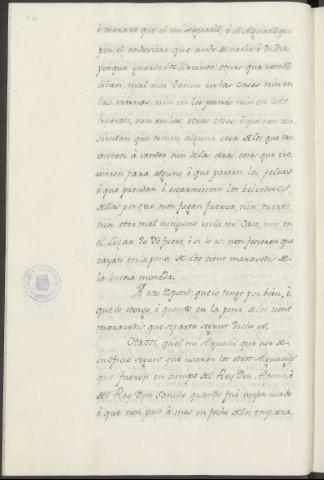 è morare que el mi Alguacil, ò el Alguacil que
por el andoviere que ande de noche è de dia,
porque guarde los Vecinos omes que non re-
ciban mal nin danno en las casas nin en
las vinnas, nin en los panes nin en los
huertos, nin en las otras cosas, è que non con-
sientan que tomen alguna cosa de los que tra-
xieren à vender nin de las otras cosas que tro-
xieren para alguno, è que partan las peleas
è que prendan è escarmienten los bolvedores
dellas porque non fagan fuerza, nin tuerto
nin otro mal ninguno en la mi Casa, nin en
el Logar do Yo fuere, è si lo asi non ficieren que
cayan en la pena de los cient maravedis de
la buena moneda.
A esto Respondo que lo tengo por bien, è
que lo otorgo, è que este en la pena de los cient
maravedis que se parta segunt dicho es.
Otrosi, quel mi Alguacil que use de
su oficio segunt que usaron los otros Alguaciles
que fueron en tiempo del Rey Don Alfonso, è
del Rey Don Sancho quando fue mejor usado
è que non pase à mas en fecho de los emplaza-